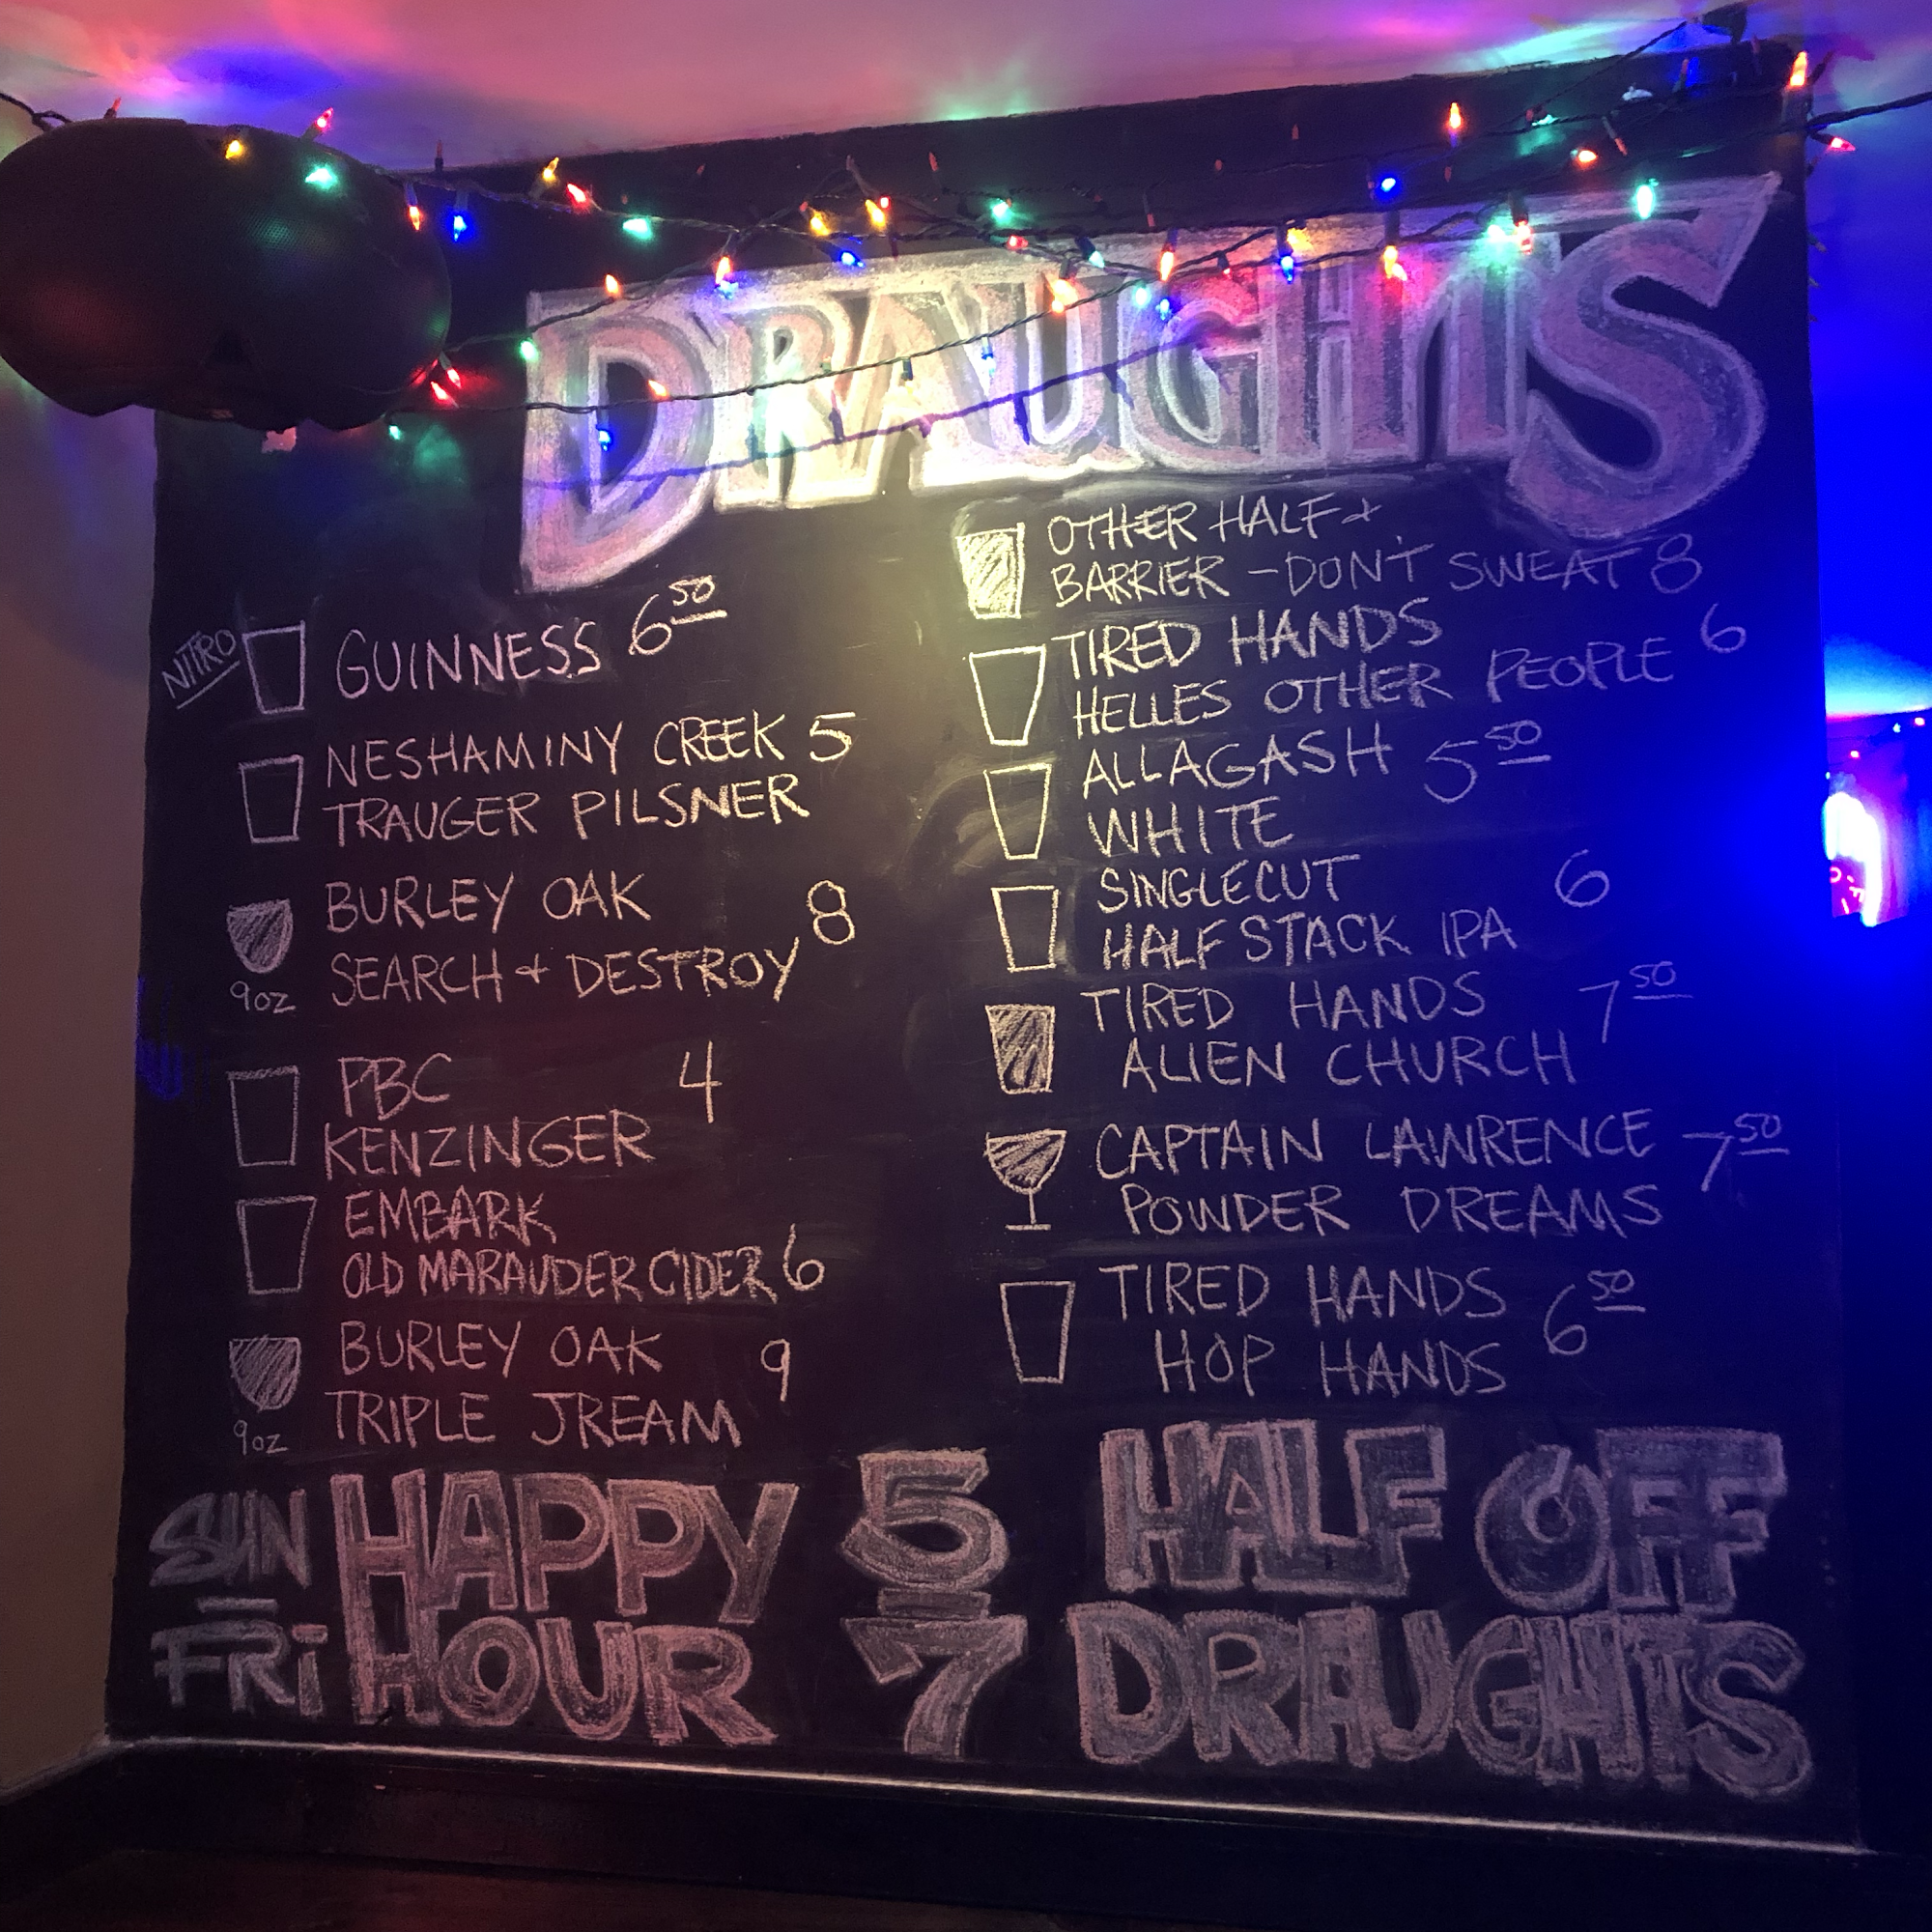 DRAUGHTS
NITRO GUINNESS 6 50
NESHAMINY CREEK 5
TRAUGER PILSNER
BURLEY OAK 8
SEARCH + DESTROY
9oz
PBC 4
KENZINGER
EMBARK
OLD MARAUDER CIDER 6
BURLEY OAK 9
TRIPLE JREAM
9oz
OTHER HALF +
BARRIER - DON'T SWEAT 8
TIRED HANDS 6
HELLES OTHER PEOPLE
ALLAGASH 5 50
WHITE
SINGLECUT 6
HALFSTACK IPA
TIRED HANDS 7 50
ALIEN CHURCH
CAPTAIN LAWRENCE 7 50
POWDER DREAMS
TIRED HANDS 6 50
HOP HANDS
SUN - FRI
HAPPY HOUR
5 - 7
HALF OFF
DRAUGHTS